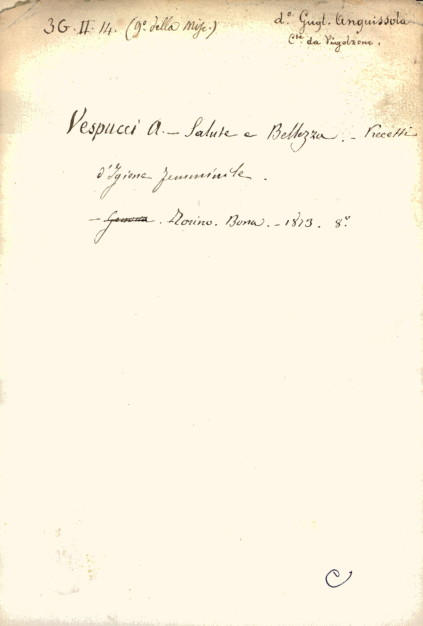 3G. II. 14. (9º della Misc.) dº Gugl. Anguissola
Cte da Vigolzone.
Vespucci A. – Salute e Bellezza. – Precetti
d'Igiene femminile.
– Genova. Torino. Bona. – 1873. 8º
C